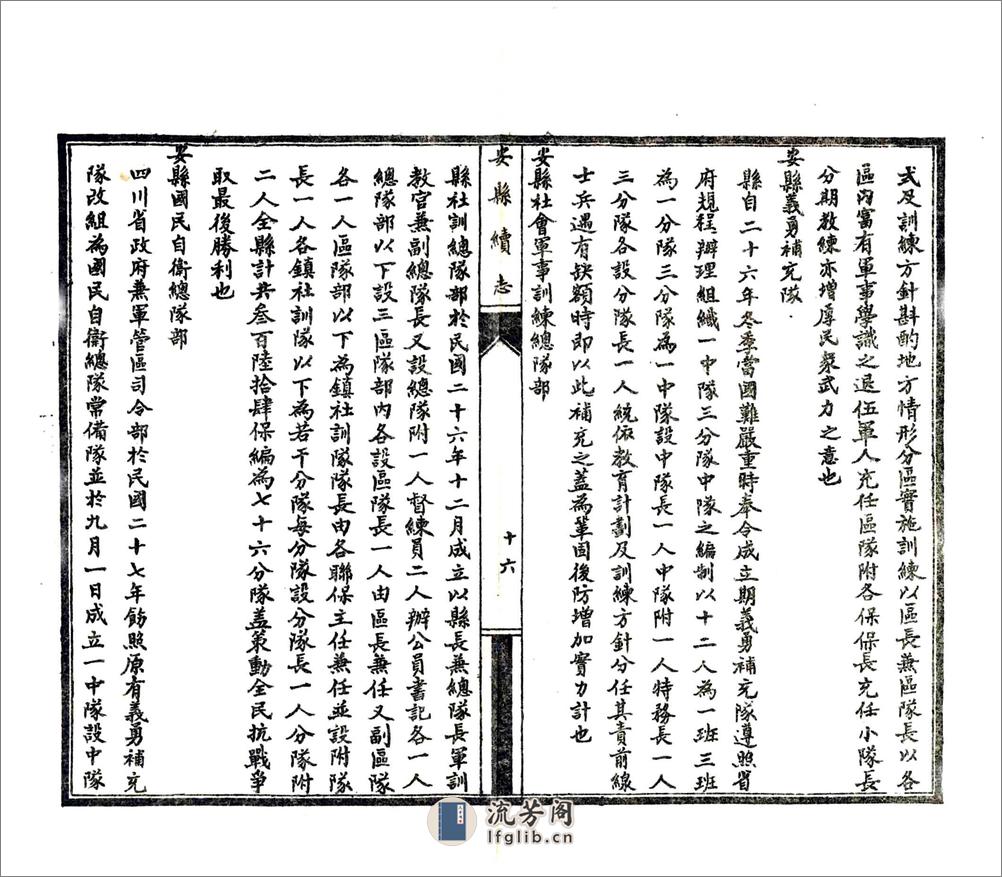 式及訓練方針斟酌地方情形分區實施訓練以區長兼區隊長以各
區內富有軍事學識之退伍軍人充任區隊附各保保長充任小隊長
分期教練亦增厚民衆武力之意也
安縣義勇補充隊
縣自二十六年冬季當國難嚴重時奉令成立期義勇補充隊遵照省
府規程辦理組織一中隊三分隊中隊之編制以十二人為一班三班
為一分隊三分隊為一中隊設中隊長一人中隊附一人特務長一人
三分隊各設分隊長一人統依教育計劃及訓練方針分任其責前線
士兵遇有缺額時即以此補充之蓋為鞏固後防增加實力計也
安縣社會軍事訓練總隊部
安縣續志
十六
縣社訓總隊部於民國二十六年十二月成立以縣長兼總隊長軍訓
教官兼副總隊長又設總隊附一人督練員二人辦公員書記各一人
總隊部以下設三區隊部內各設區隊長一人由區長兼任又副區隊
各一人區隊部以下為鎮社訓隊隊長由各聯保主任兼任並設附隊
長一人各鎮社訓隊以下為若干分隊每分隊設分隊長一人分隊附
二人全縣計共叁百陸拾肆保編為七十六分隊蓋策動全民抗戰爭
取最後勝利也
安縣國民自衛總隊部
四川省政府兼軍管區司令部於民國二十七年飭照原有義勇補充
隊改組為國民自衛總隊常備隊並於九月一日成立一中隊設中隊
流芳阁
lfglib.cn